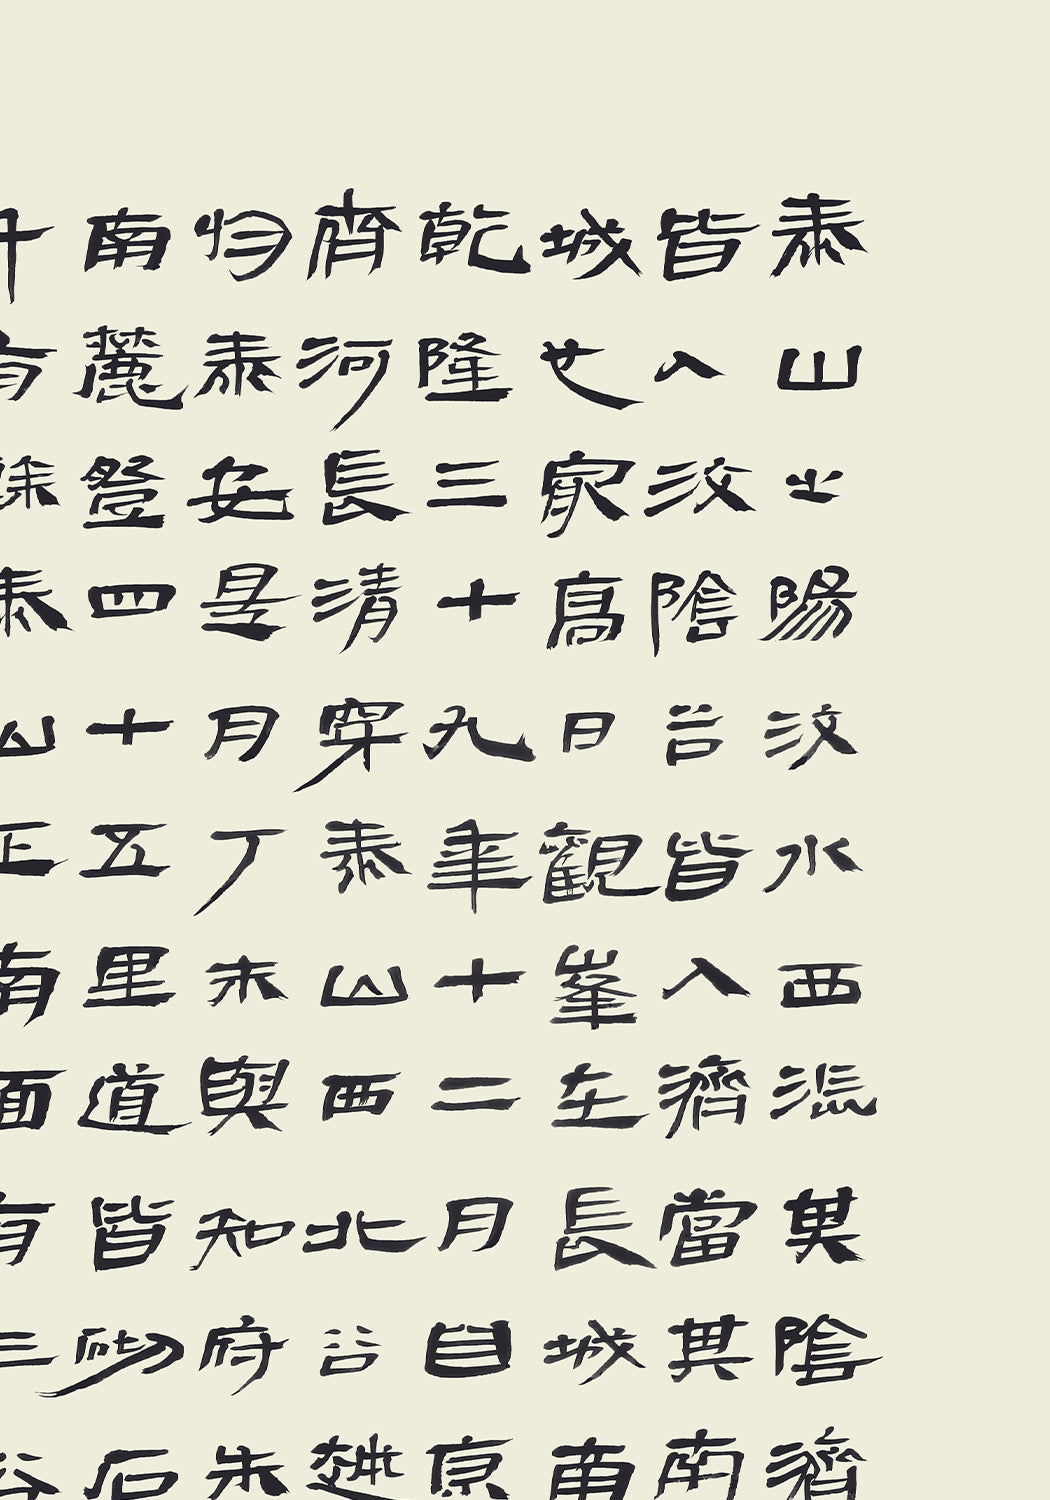 泰山之陽汶水西流其陰濟
皆入汶陰谷皆入濟當其南
城也最高日觀峯在長城南
乾隆三十九年十二月自京
齊河長清穿泰山西北谷越
归泰安是月丁未與知府朱
南麓登四十五里道皆砌石
千有餘泰山正南面有三谷